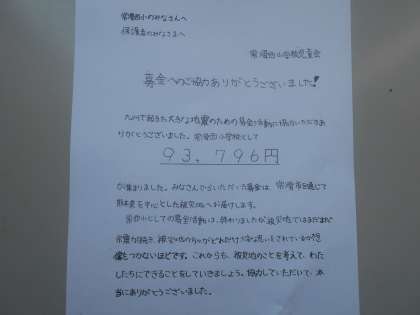 常滑西小のみなさんへ
保護者のみなさまへ
常滑西小学校児童会
募金へのご協力ありがとうございました!
九州で起きた大きな地震のための募金活動に協力いただきあ
りがとうございました。常滑西小学校として
93,796円
が集まりました。みなさんからいただいた募金は、常滑市を通じて
熊本県を中心とした被災地へお届けします。
常西小としての募金活動は、終わりましたが被災地ではまだまだ
余震が続き、被災地の方々がどれだけつらい思いをされているか想
像もつかないほどです。これからも、被災地のことを考えて、わた
したちにできることをしていきましょう。協力していただいて、本
当にありがとうございました。